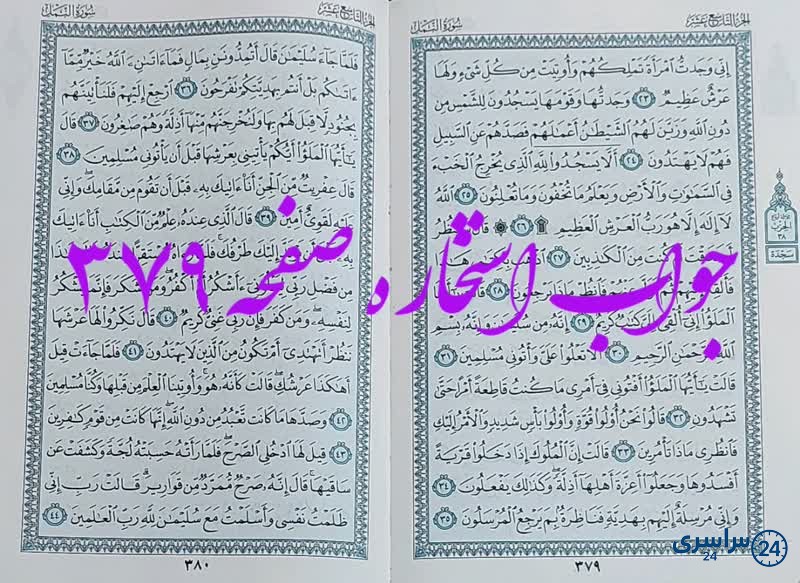 الجزء التاسع عشر
سورة النمل
إِنِّي وَجَدتُّ ٱمْرَأَةً تَمْلِكُهُمْ وَأُوتِيَتْ مِن كُلِّ شَىْءٍ وَلَهَا
عَرْشٌ عَظِيمٌ ٢٣ وَجَدتُّهَا وَقَوْمَهَا يَسْجُدُونَ لِلشَّمْسِ مِن
دُونِ ٱللَّهِ وَزَيَّنَ لَهُمُ ٱلشَّيْطَٰنُ أَعْمَٰلَهُمْ فَصَدَّهُمْ عَنِ ٱلسَّبِيلِ
فَهُمْ لَا يَهْتَدُونَ ٢٤ أَلَّا يَسْجُدُوا۟ لِلَّهِ ٱلَّذِى يُخْرِجُ ٱلْخَبْءَ
فِى ٱلسَّمَٰوَٰتِ وَٱلْأَرْضِ وَيَعْلَمُ مَا تُخْفُونَ وَمَا تُعْلِنُونَ ٢٥ ٱللَّهُ
لَآ إِلَٰهَ إِلَّا هُوَ رَبُّ ٱلْعَرْشِ ٱلْعَظِيمِ ۩ ٢٦ ۞ قَالَ سَنَنظُرُ
أَصَدَقْتَ أَمْ كُنتَ مِنَ ٱلْكَٰذِبِينَ ٢٧ ٱذْهَب بِّكِتَٰبِى هَٰذَا
فَأَلْقِهْ إِلَيْهِمْ ثُمَّ تَوَلَّ عَنْهُمْ فَٱنظُرْ مَاذَا يَرْجِعُونَ ٢٨ قَالَتْ يَٰٓأَيُّهَا
ٱلْمَلَؤُا۟ إِنِّىٓ أُلْقِىَ إِلَىَّ كِتَٰبٌ كَرِيمٌ ٢٩ إِنَّهُۥ مِن سُلَيْمَٰنَ وَإِنَّهُۥ بِسْمِ
ٱللَّهِ ٱلرَّحْمَٰنِ ٱلرَّحِيمِ ٣٠ أَلَّا تَعْلُوا۟ عَلَىَّ وَأْتُونِى مُسْلِمِينَ ٣١
قَالَتْ يَٰٓأَيُّهَا ٱلْمَلَؤُا۟ أَفْتُونِى فِىٓ أَمْرِى مَا كُنتُ قَاطِعَةً أَمْرًا حَتَّىٰ
تَشْهَدُونِ ٣٢ قَالُوا۟ نَحْنُ أُو۟لُوا۟ قُوَّةٍ وَأُو۟لُوا۟ بَأْسٍ شَدِيدٍ وَٱلْأَمْرُ إِلَيْكِ
فَٱنظُرِى مَاذَا تَأْمُرِينَ ٣٣ قَالَتْ إِنَّ ٱلْمُلُوكَ إِذَا دَخَلُوا۟ قَرْيَةً
أَفْسَدُوهَا وَجَعَلُوٓا۟ أَعِزَّةَ أَهْلِهَآ أَذِلَّةً وَكَذَٰلِكَ يَفْعَلُونَ ٣٤
وَإِنِّى مُرْسِلَةٌ إِلَيْهِم بِهَدِيَّةٍ فَنَاظِرَةٌۢ بِمَ يَرْجِعُ ٱلْمُرْسَلُونَ ٣٥
٣٧٩
الحزب
٣٨
سجدة
الجزء التاسع عشر
سورة النمل
فَلَمَّا جَآءَ سُلَيْمَٰنَ قَالَ أَتُمِدُّونَنِ بِمَالٍ فَمَآ ءَاتَىٰنِۦَ ٱللَّهُ خَيْرٌ مِّمَّآ
ءَاتَىٰكُم بَلْ أَنتُم بِهَدِيَّتِكُمْ تَفْرَحُونَ ٣٦ ٱرْجِعْ إِلَيْهِمْ فَلَنَأْتِيَنَّهُم
بِجُنُودٍ لَّا قِبَلَ لَهُم بِهَا وَلَنُخْرِجَنَّهُم مِّنْهَآ أَذِلَّةً وَهُمْ صَٰغِرُونَ ٣٧ قَالَ
يَٰٓأَيُّهَا ٱلْمَلَؤُا۟ أَيُّكُمْ يَأْتِينِى بِعَرْشِهَا قَبْلَ أَن يَأْتُونِى مُسْلِمِينَ ٣٨
قَالَ عِفْرِيتٌ مِّنَ ٱلْجِنِّ أَنَا۠ ءَاتِيكَ بِهِۦ قَبْلَ أَن تَقُومَ مِن مَّقَامِكَ وَإِنِّى
عَلَيْهِ لَقَوِىٌّ أَمِينٌ ٣٩ قَالَ ٱلَّذِى عِندَهُۥ عِلْمٌ مِّنَ ٱلْكِتَٰبِ أَنَا۠ ءَاتِيكَ
بِهِۦ إِلَيْكَ طَرْفُكَ فَلَمَّا رَءَاهُ مُسْتَقِرًّا عِندَهُۥ هَٰذَا
مِن فَضْلِ رَبِّى ءَأَشْكُرُ أَمْ أَكْفُرُ وَمَن شَكَرَ فَإِنَّمَا يَشْكُرُ
لِنَفْسِهِۦ وَمَن كَفَرَ فَإِنَّ رَبِّى غَنِىٌّ كَرِيمٌ ٤٠ قَالَ نَكِّرُوا۟ لَهَا عَرْشَهَا
نَنظُرْ أَتَهْتَدِىٓ أَمْ تَكُونُ مِنَ ٱلَّذِينَ لَا يَهْتَدُونَ ٤١ فَلَمَّا جَآءَتْ قِيلَ
أَهَٰكَذَا عَرْشُكِ قَالَتْ كَأَنَّهُۥ هُوَ وَأُوتِينَا ٱلْعِلْمَ مِن قَبْلِهَا وَكُنَّا مُسْلِمِينَ
٤٢ وَصَدَّهَا مَا كَانَت تَّعْبُدُ مِن دُونِ ٱللَّهِ إِنَّهَا كَانَتْ مِن قَوْمٍ كَٰفِرِينَ
٤٣ قِيلَ لَهَا ٱدْخُلِى ٱلصَّرْحَ فَلَمَّا رَأَتْهُ حَسِبَتْهُ لُجَّةً وَكَشَفَتْ عَن
سَاقَيْهَا قَالَ إِنَّهُۥ صَرْحٌ مُّمَرَّدٌ مِّن قَوَارِيرَ قَالَتْ رَبِّ إِنِّى
ظَلَمْتُ نَفْسِى وَأَسْلَمْتُ مَعَ سُلَيْمَٰنَ لِلَّهِ رَبِّ ٱلْعَٰلَمِينَ ٤٤
٣٨٠
جواب استخاره صفحه ۳۷۹
سراسری
24
24